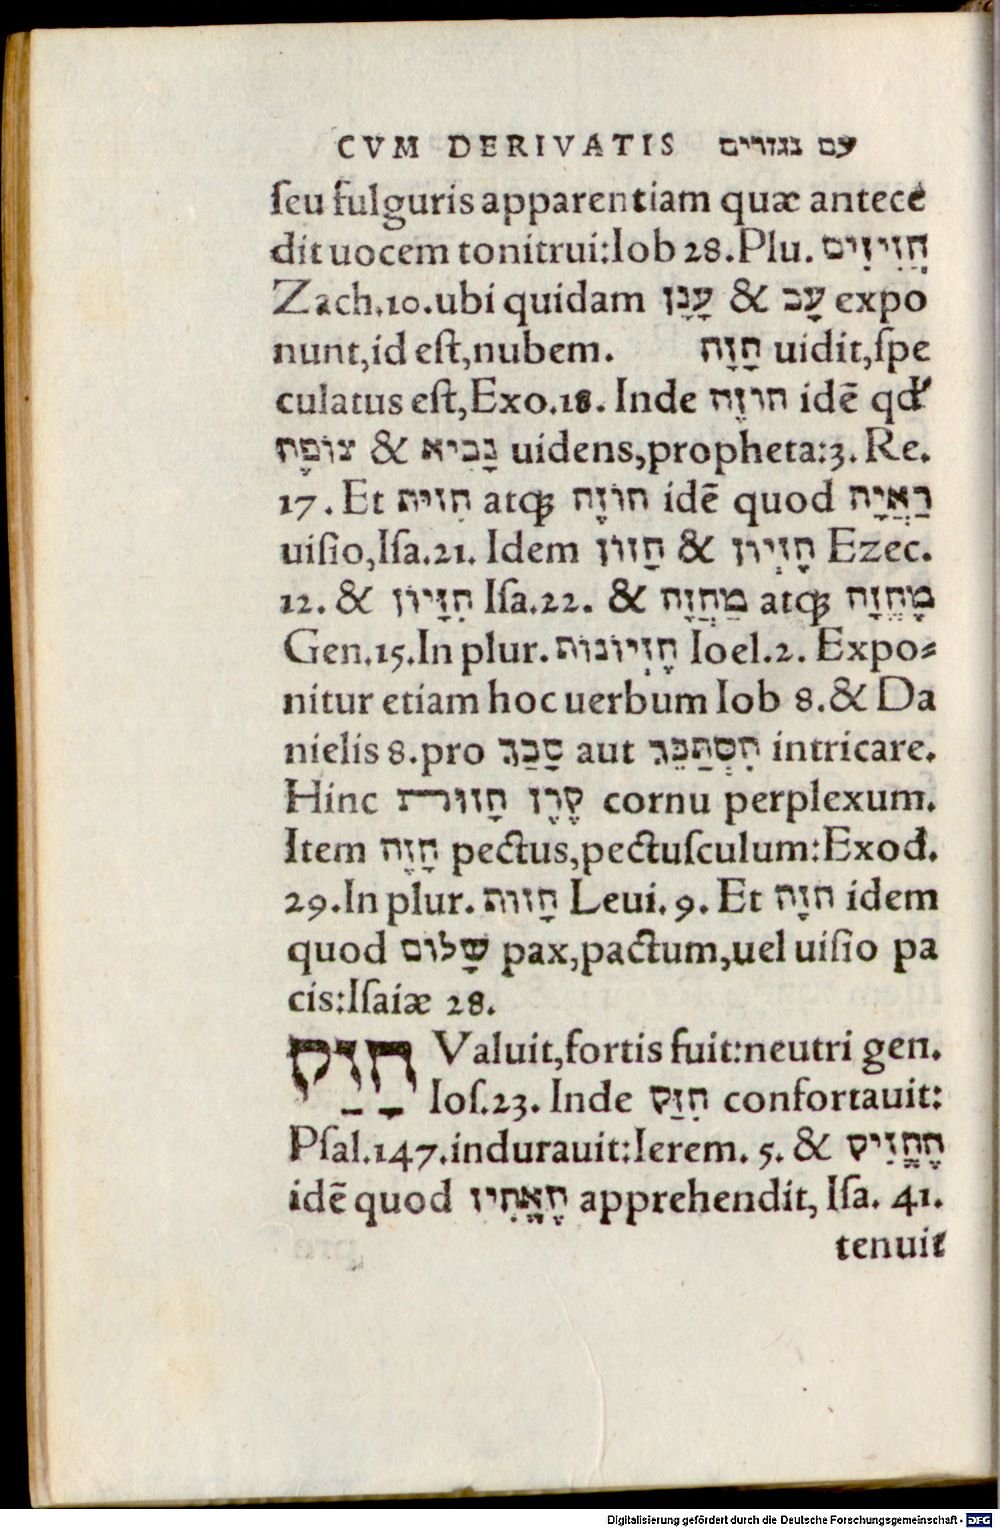 CVM DERIVATIS עם נגזרים
ſeu fulguris apparentiam quæ antece
dit uocem tonitrui:Iob 28.Plu. חֲזִיזִים
Zach.10.ubi quidam עָנָן & עָב expo
nunt,id eſt,nubem. חָזָה uidit,ſpe
culatus eſt,Exo.18. Inde חוֹזֶה idē qd'
נָבִיא & צוֹפֶה uidens,propheta:3. Re.
17. Et חזית atq; חוֹזָה idē quod רַאֲיָה
uiſio,Iſa.21. Idem חָזוֹן & חָזְיוֹן Ezec.
12. & חִזָּיוֹן Iſa.22. & מַחֲזָה atq; מָחֱזָה
Gen.15.In plur. חֶזְיוֹנוֹת Ioel.2. Expo⸗
nitur etiam hoc uerbum Iob 8.& Da
nielis 8.pro סָבַךְ aut הִסְתַּבֵּךְ intricare.
Hinc קֶרֶן חָזוּת cornu perplexum.
Item חָזֶה pectus,pectuſculum:Exod.
29.In plur. חָזוֹת Leui. 9. Et חֹזֶה idem
quod שָׁלוֹם pax,pactum,uel uiſio pa
cis:Iſaiæ 28.
חָזַק Valuit,fortis fuit:neutri gen.
Ioſ.23. Inde חִזַּק confortauit:
Pſal.147.indurauit:Ierem. 5. & הֶחֱזִיק
idē quod הֶאֱחִיז apprehendit, Iſa. 41.
tenuit
Digitalisierung gefördert durch die Deutsche Forschungsgemeinschaft - DFG